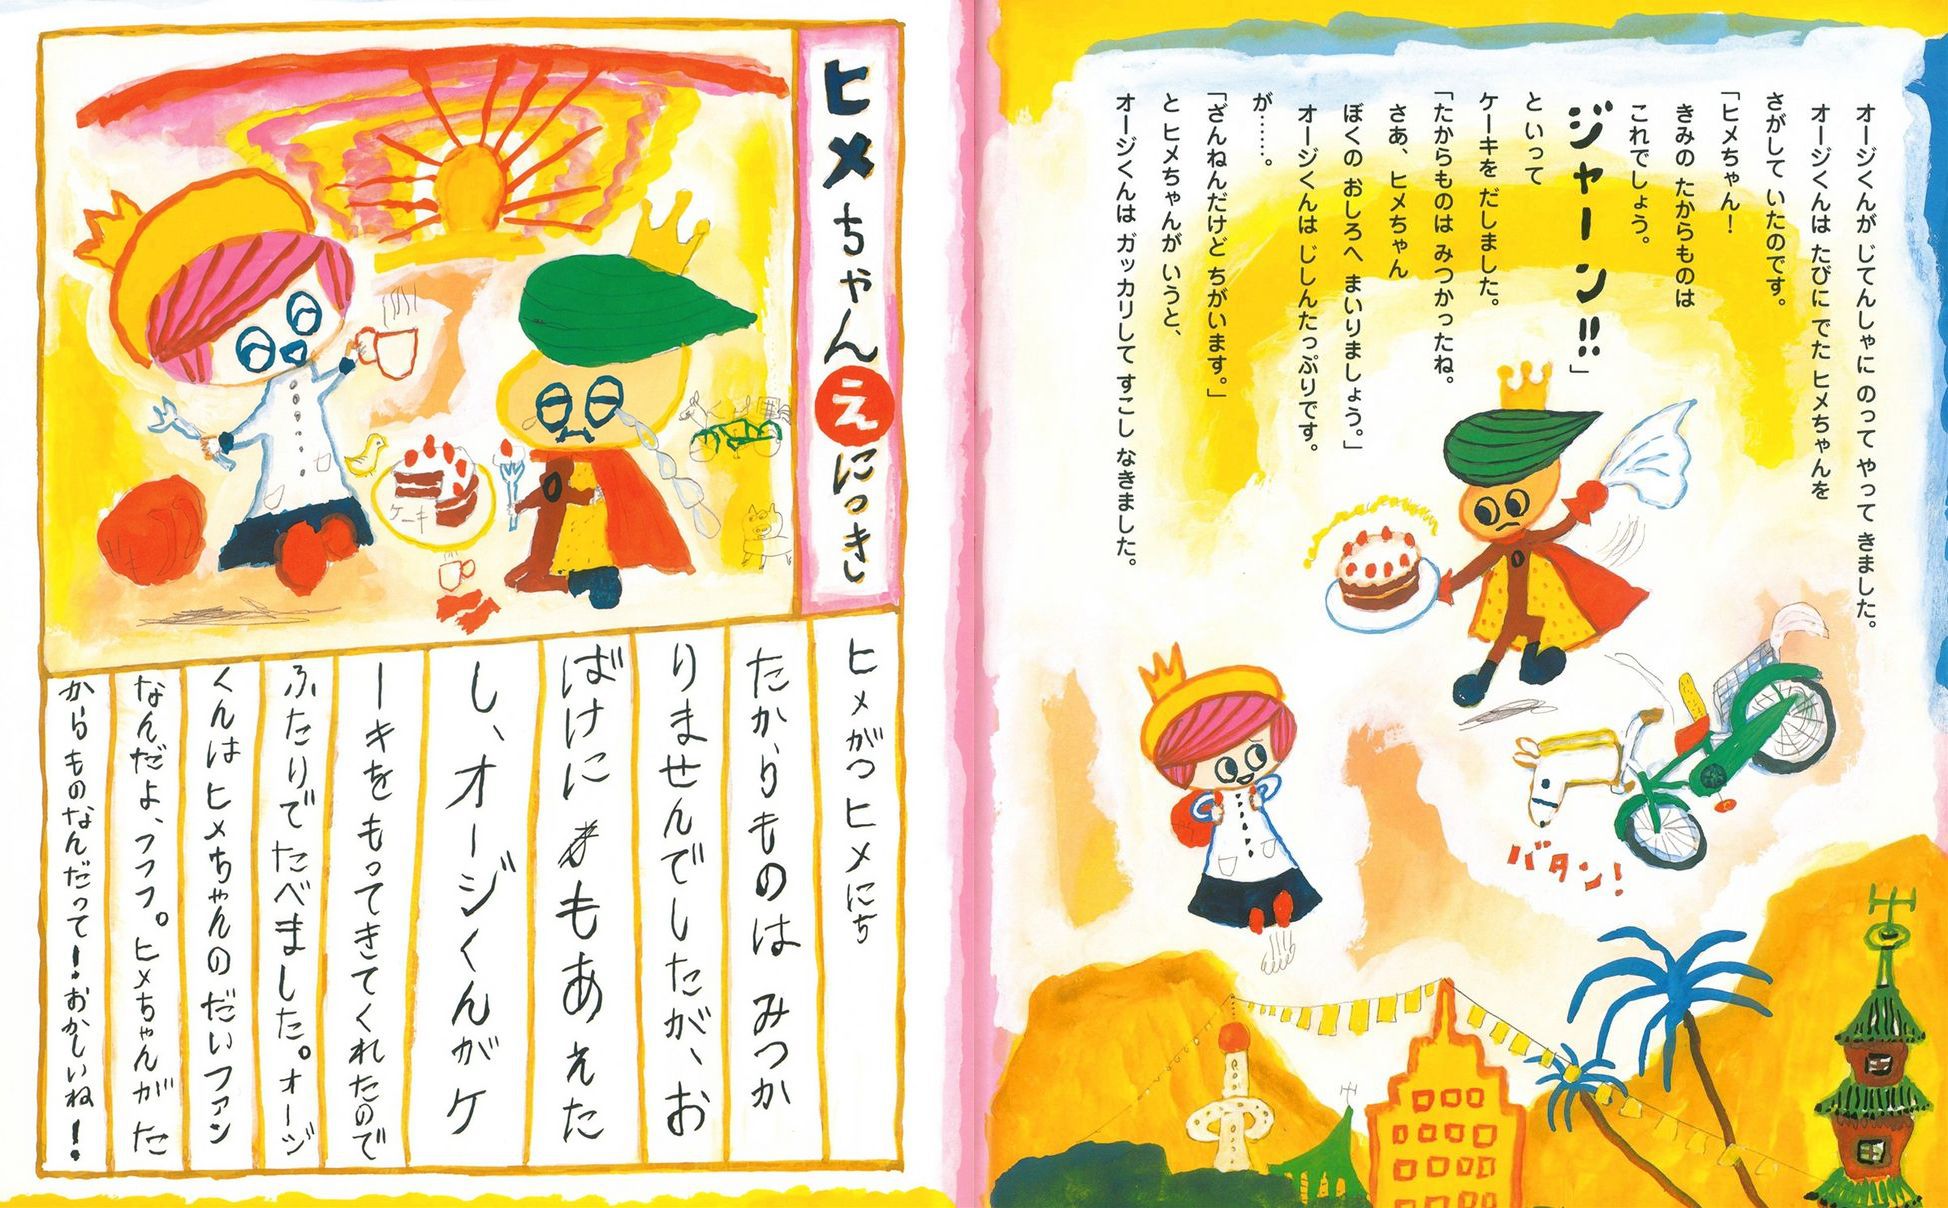 オージくんが じてんしゃに のって やって きました。
オージくんは たびに でた ヒメちゃんを
さがして いたのです。
「ヒメちゃん！
きみの たからものは
これでしょう。
ジャーン!!」
といって
ケーキを だしました。
「たからものは みつかったね。
さあ、ヒメちゃん
ぼくの おしろへ まいりましょう。」
オージくんは じしんたっぷりです。
が……。
「ざんねんだけど ちがいます。」
と ヒメちゃんが いうと、
オージくんは ガッカリして すこし なきました。
バタン！
ヒメちゃんえにっき
ケーキ
ヒメがつヒメにち
たからものは みつか
りませんでしたが、お
ばけにもあえた
し、オージくんがケ
ーキをもってきてくれたので
ふたりでたべました。オージ
くんはヒメちゃんのだいファン
なんだよ、フフフ。ヒメちゃんがた
からものなんだって！おかしいね！